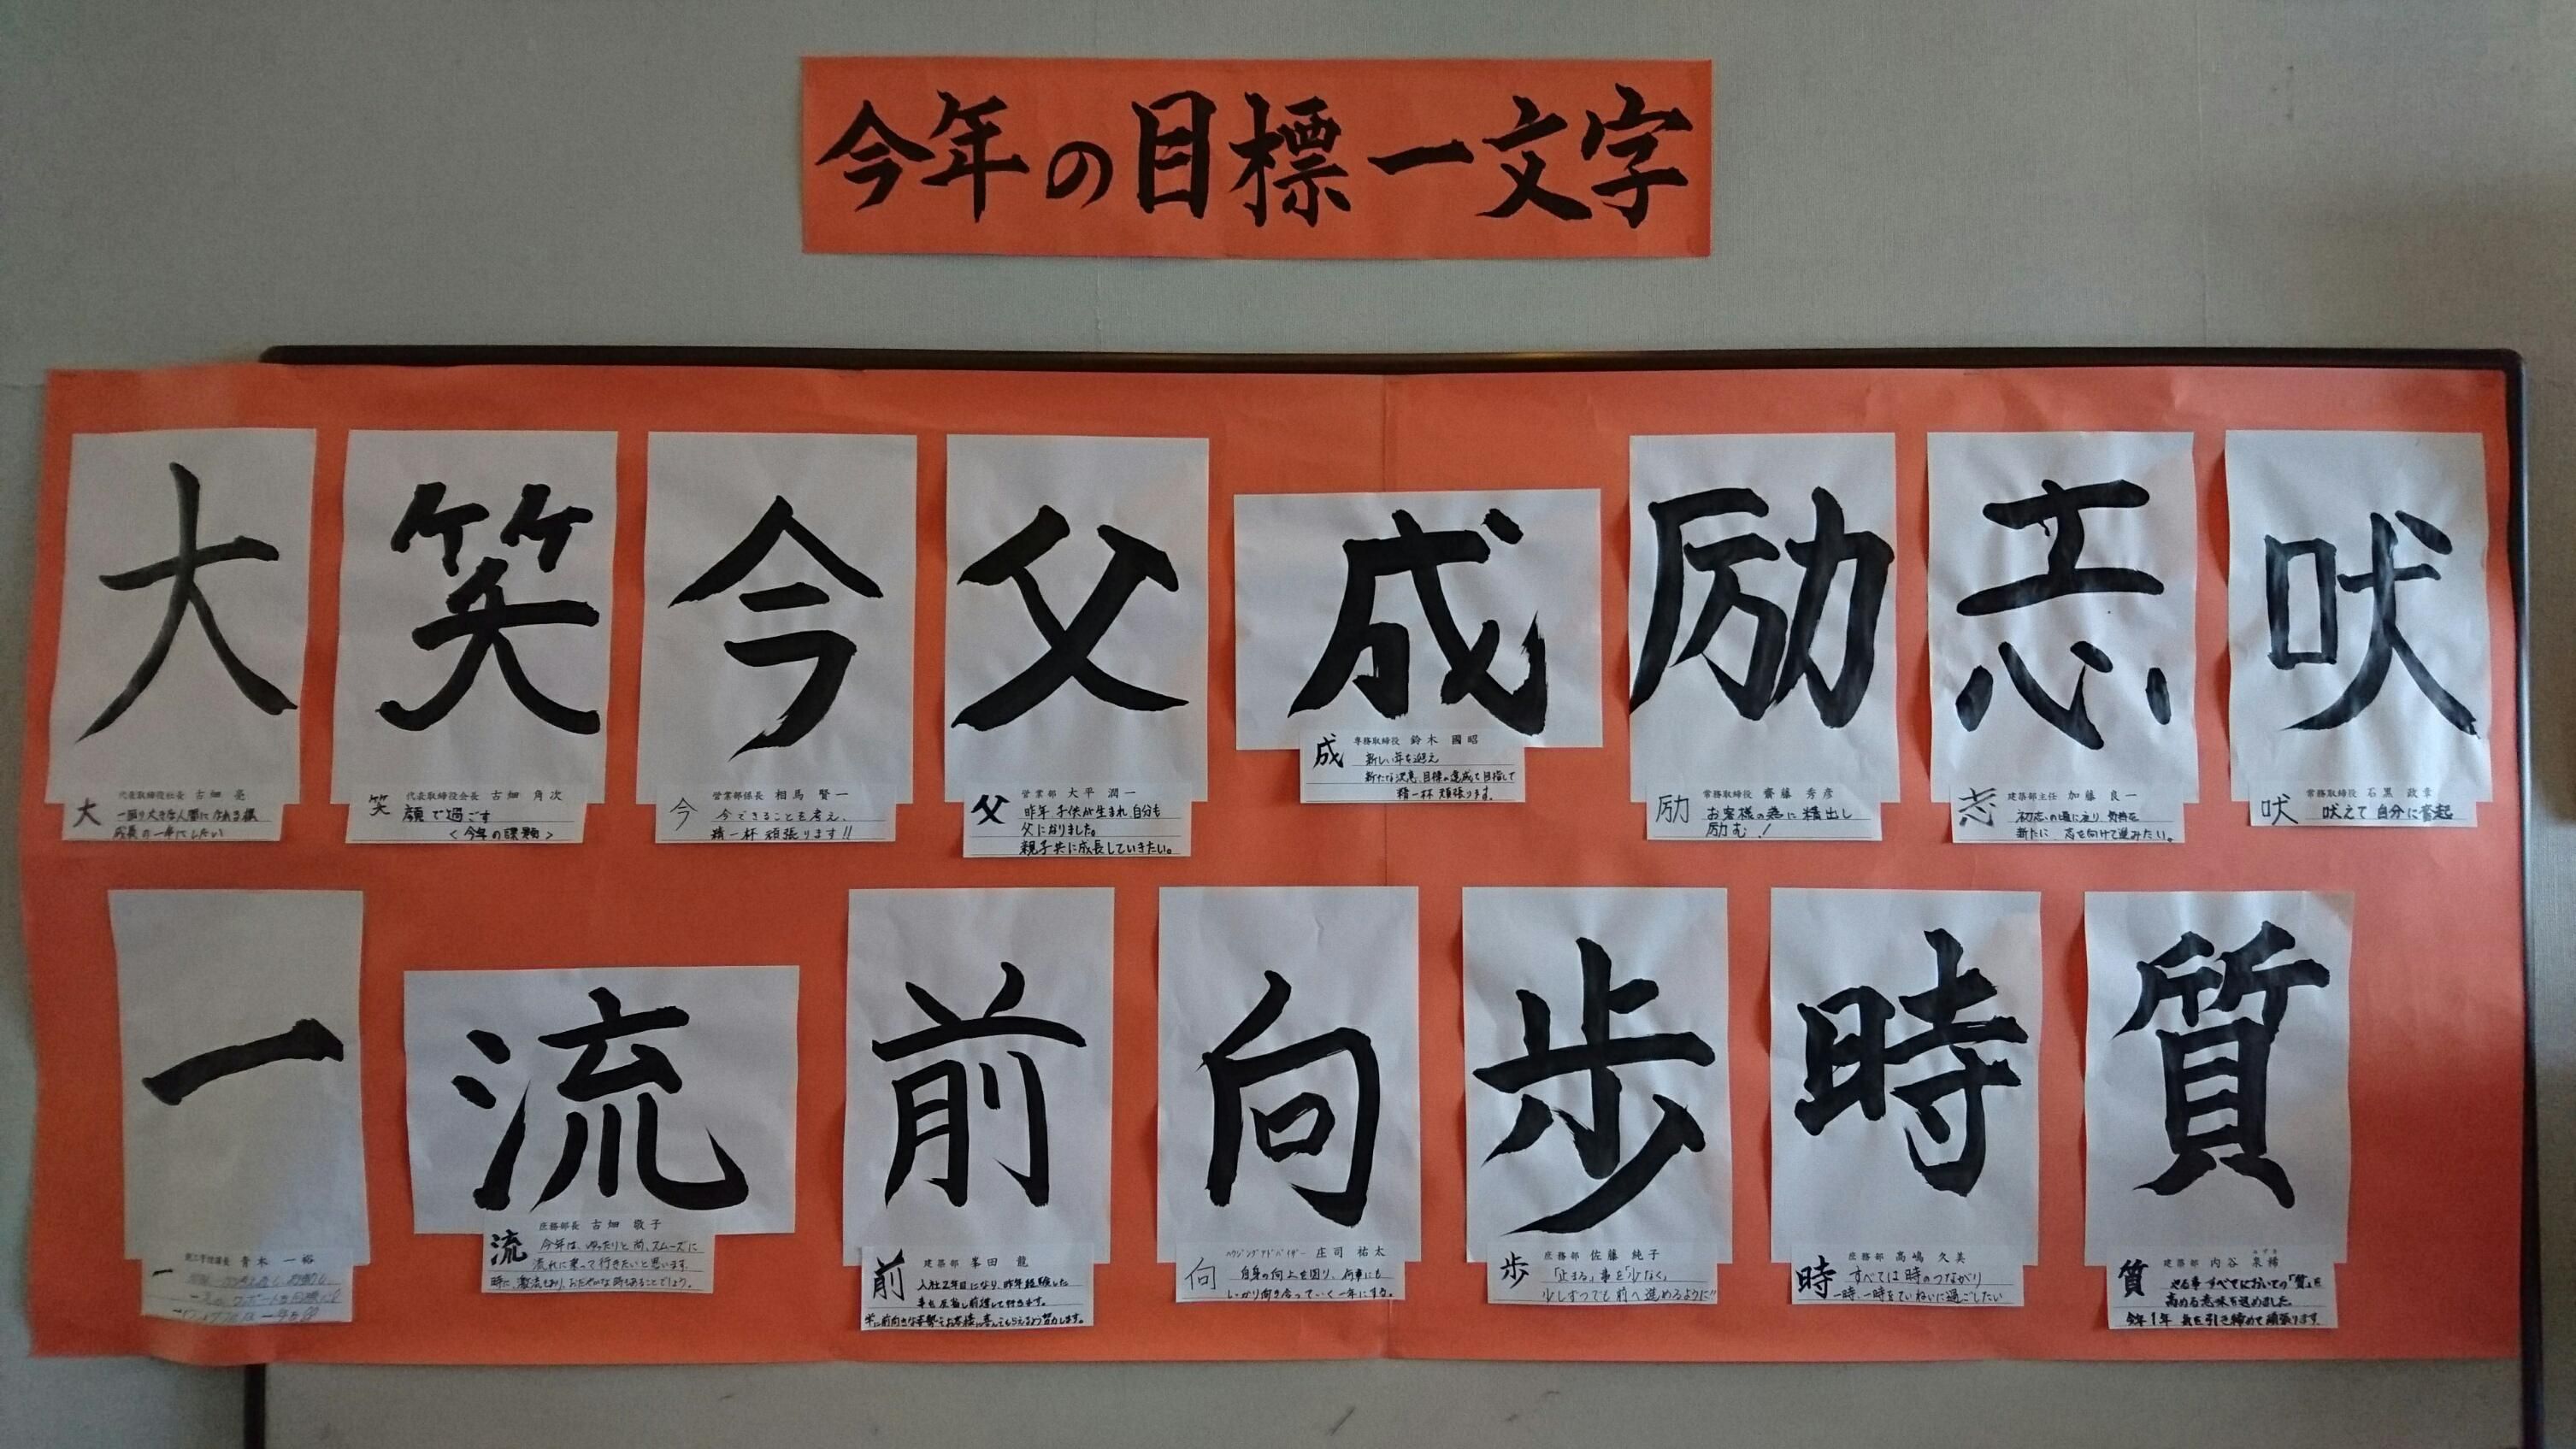 今年の目標一文字
大
大 代表取締役社長 古畑 亮
一回り大きな人間になれる様
成長の一年にしたい
笑
笑 代表取締役会長 古畑 角次
顔で過ごす
<今年の課題>
今
今 営業部係長 相馬 賢一
今できることを考え、
精一杯頑張ります!!
父
父 営業部 大平 潤一
昨年、子供が生まれ、自分も
父になりました。
親子共に成長していきたい。
成
成 専務取締役 鈴木 國昭
新しい年を迎え
新たな決意、目標の達成を目指して
精一杯頑張ります。
励
励 常務取締役 齋藤 秀彦
お客様の為に精出し
励む!
志
志 建築部主任 加藤 良一
初志の頃に戻り、気持を
新たに、志を向けて進みたい。
吠
吠 常務取締役 石黒 政幸
吠えて自分に奮起
一
一 青木 一裕
流
流 庶務部長 古畑 敬子
今年は、ゆったりと尚、スムーズに
流れに乗って行きたいと思います。
時に、激流もあり、おだやかな時もあることでしょう。
前
前 建築部 峯田 龍
入社2年目になり、昨年経験した
事を反省し前進して行きます。
常に前向きな姿勢でお客様に喜んでもらえるよう努力します。
向
向 ハウジングアドバイザー 庄司 祐太
自身の向上を図り、何事にも
しっかり向き合っていく一年にする。
歩
歩 庶務部 佐藤 純子
「止まる」事を「少なく」
少しずつでも前へ進めるように!!
時
時 庶務部 高嶋 久美
すべては時のつながり
一時、一時をていねいに過ごしたい
質
質 建築部 内谷 泉稀
やる事すべてにおいての「質」を
高める意味を込めました。
今年1年 気を引き締めて頑張ります。